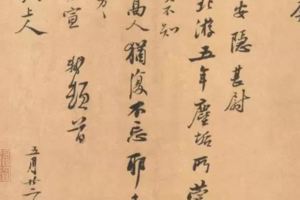 安隱甚慰
北游五年塵垢所蒙
不知
高人猶復不忘耶
宣 軾頓首
上人
五月廿二